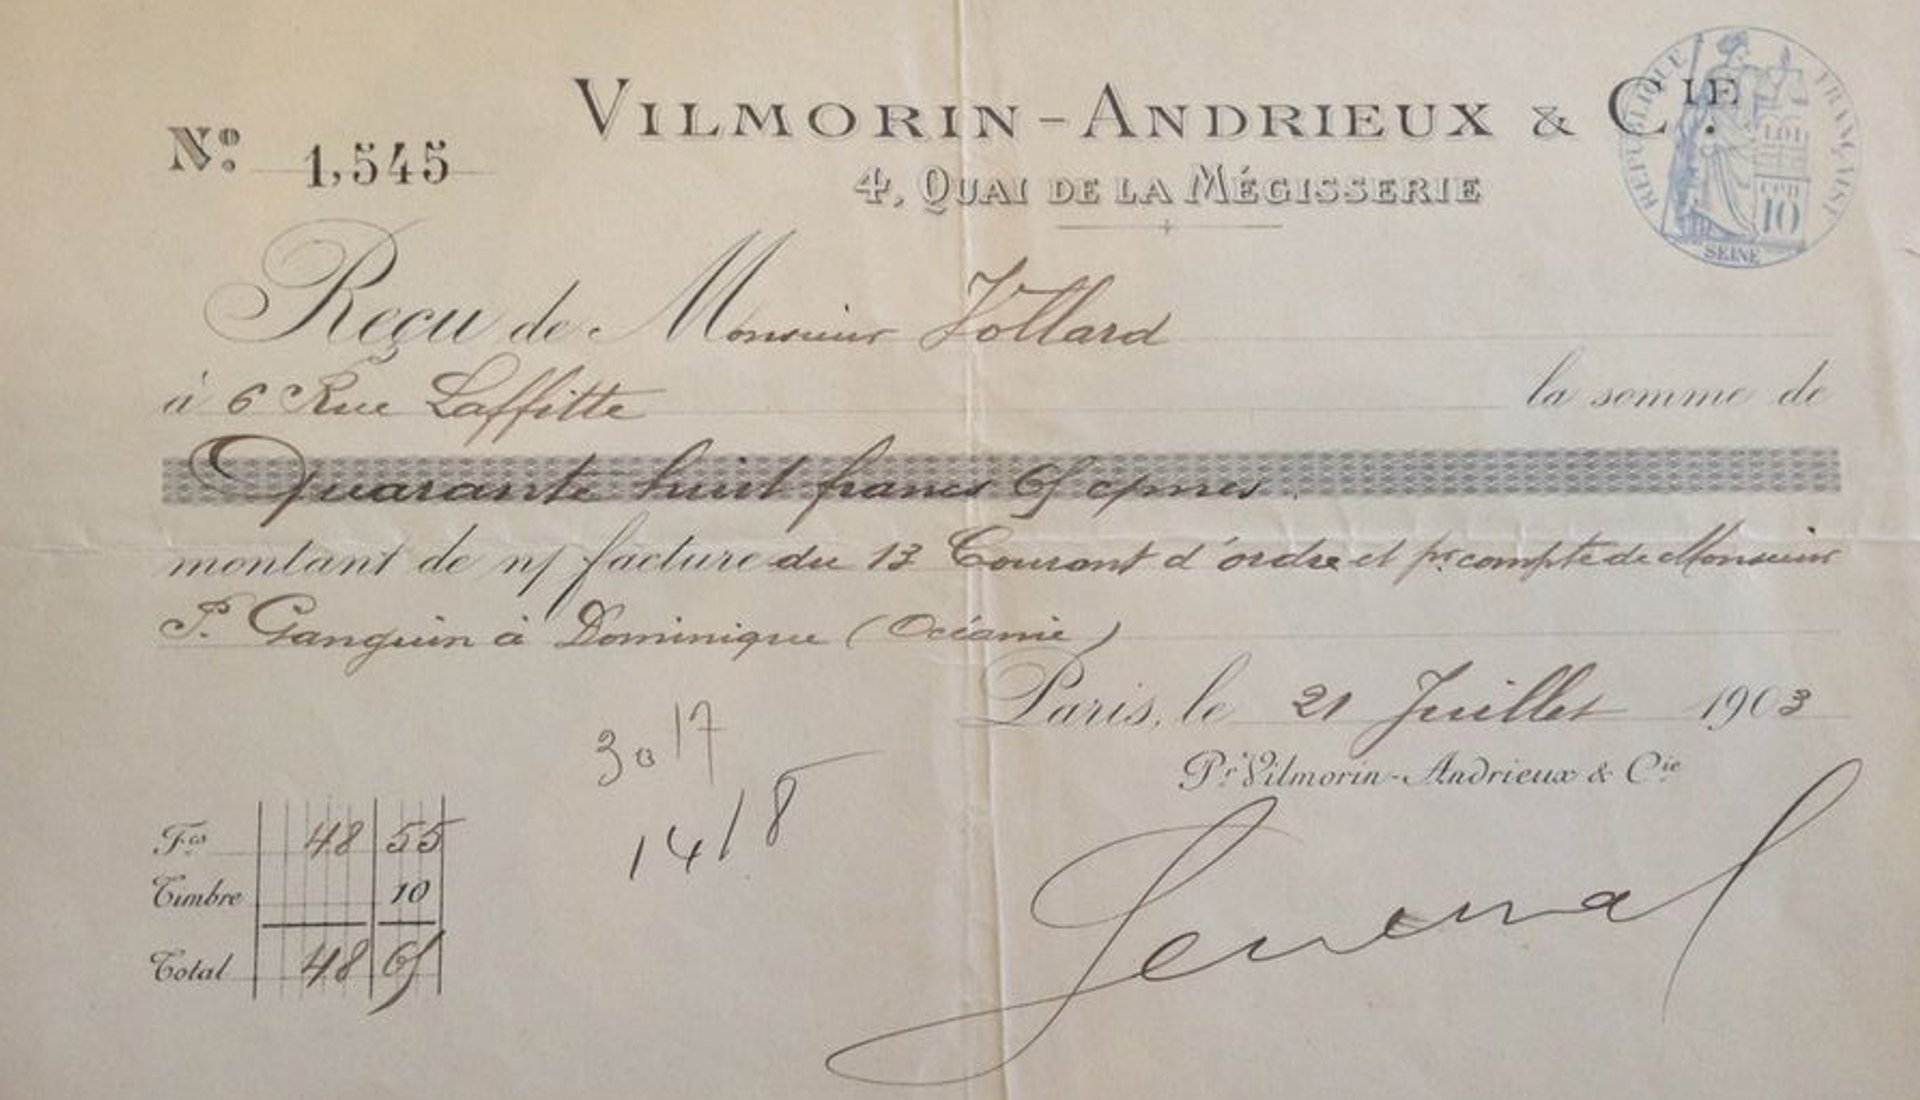 VILMORIN-ANDRIEUX & CIE.
Nº 1,545
4, QUAI DE LA MÉGISSERIE
RÉPUBLIQUE FRANÇAISE
LOI
10
SEINE
Reçu de Monsieur Vollard
à 6 Rue Laffitte la somme de
Quarante huit francs 65 cmes.
montant de n/ facture du 13 Courant d'ordre et pr. compte de Monsieur
P. Ganguin à Dominique (Océanie)
Paris, le 21 Juillet 1903
30 17
Pr. Vilmorin-Andrieux & Cie
14/8
Fcs 48 55
Timbre 10
Total 48 65